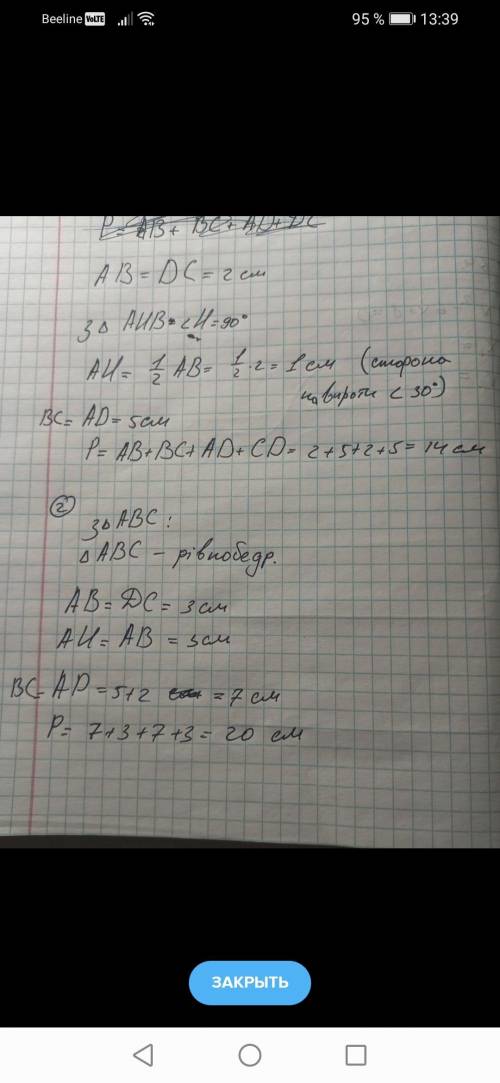 Beeline VoLTE 95 % 13:39
P= AB+ BC+ AD+DC
AB = DC = 2 см
З △ AHB < H=90°
AH= 1/2 AB= 1/2 · 2 = 1 см (сторона
навпроти < 30°)
BC= AD= 5см
P= AB+BC+AD+CD= 2+5+2+5= 14 см
2
З △ ABC :
△ ABC – рівнобедр.
AB= DC= 3 см
AH= AB = 3см
BC= AD =5+2 = 7 см
P= 7+3+7+3= 20 см
ЗАКРЫТЬ